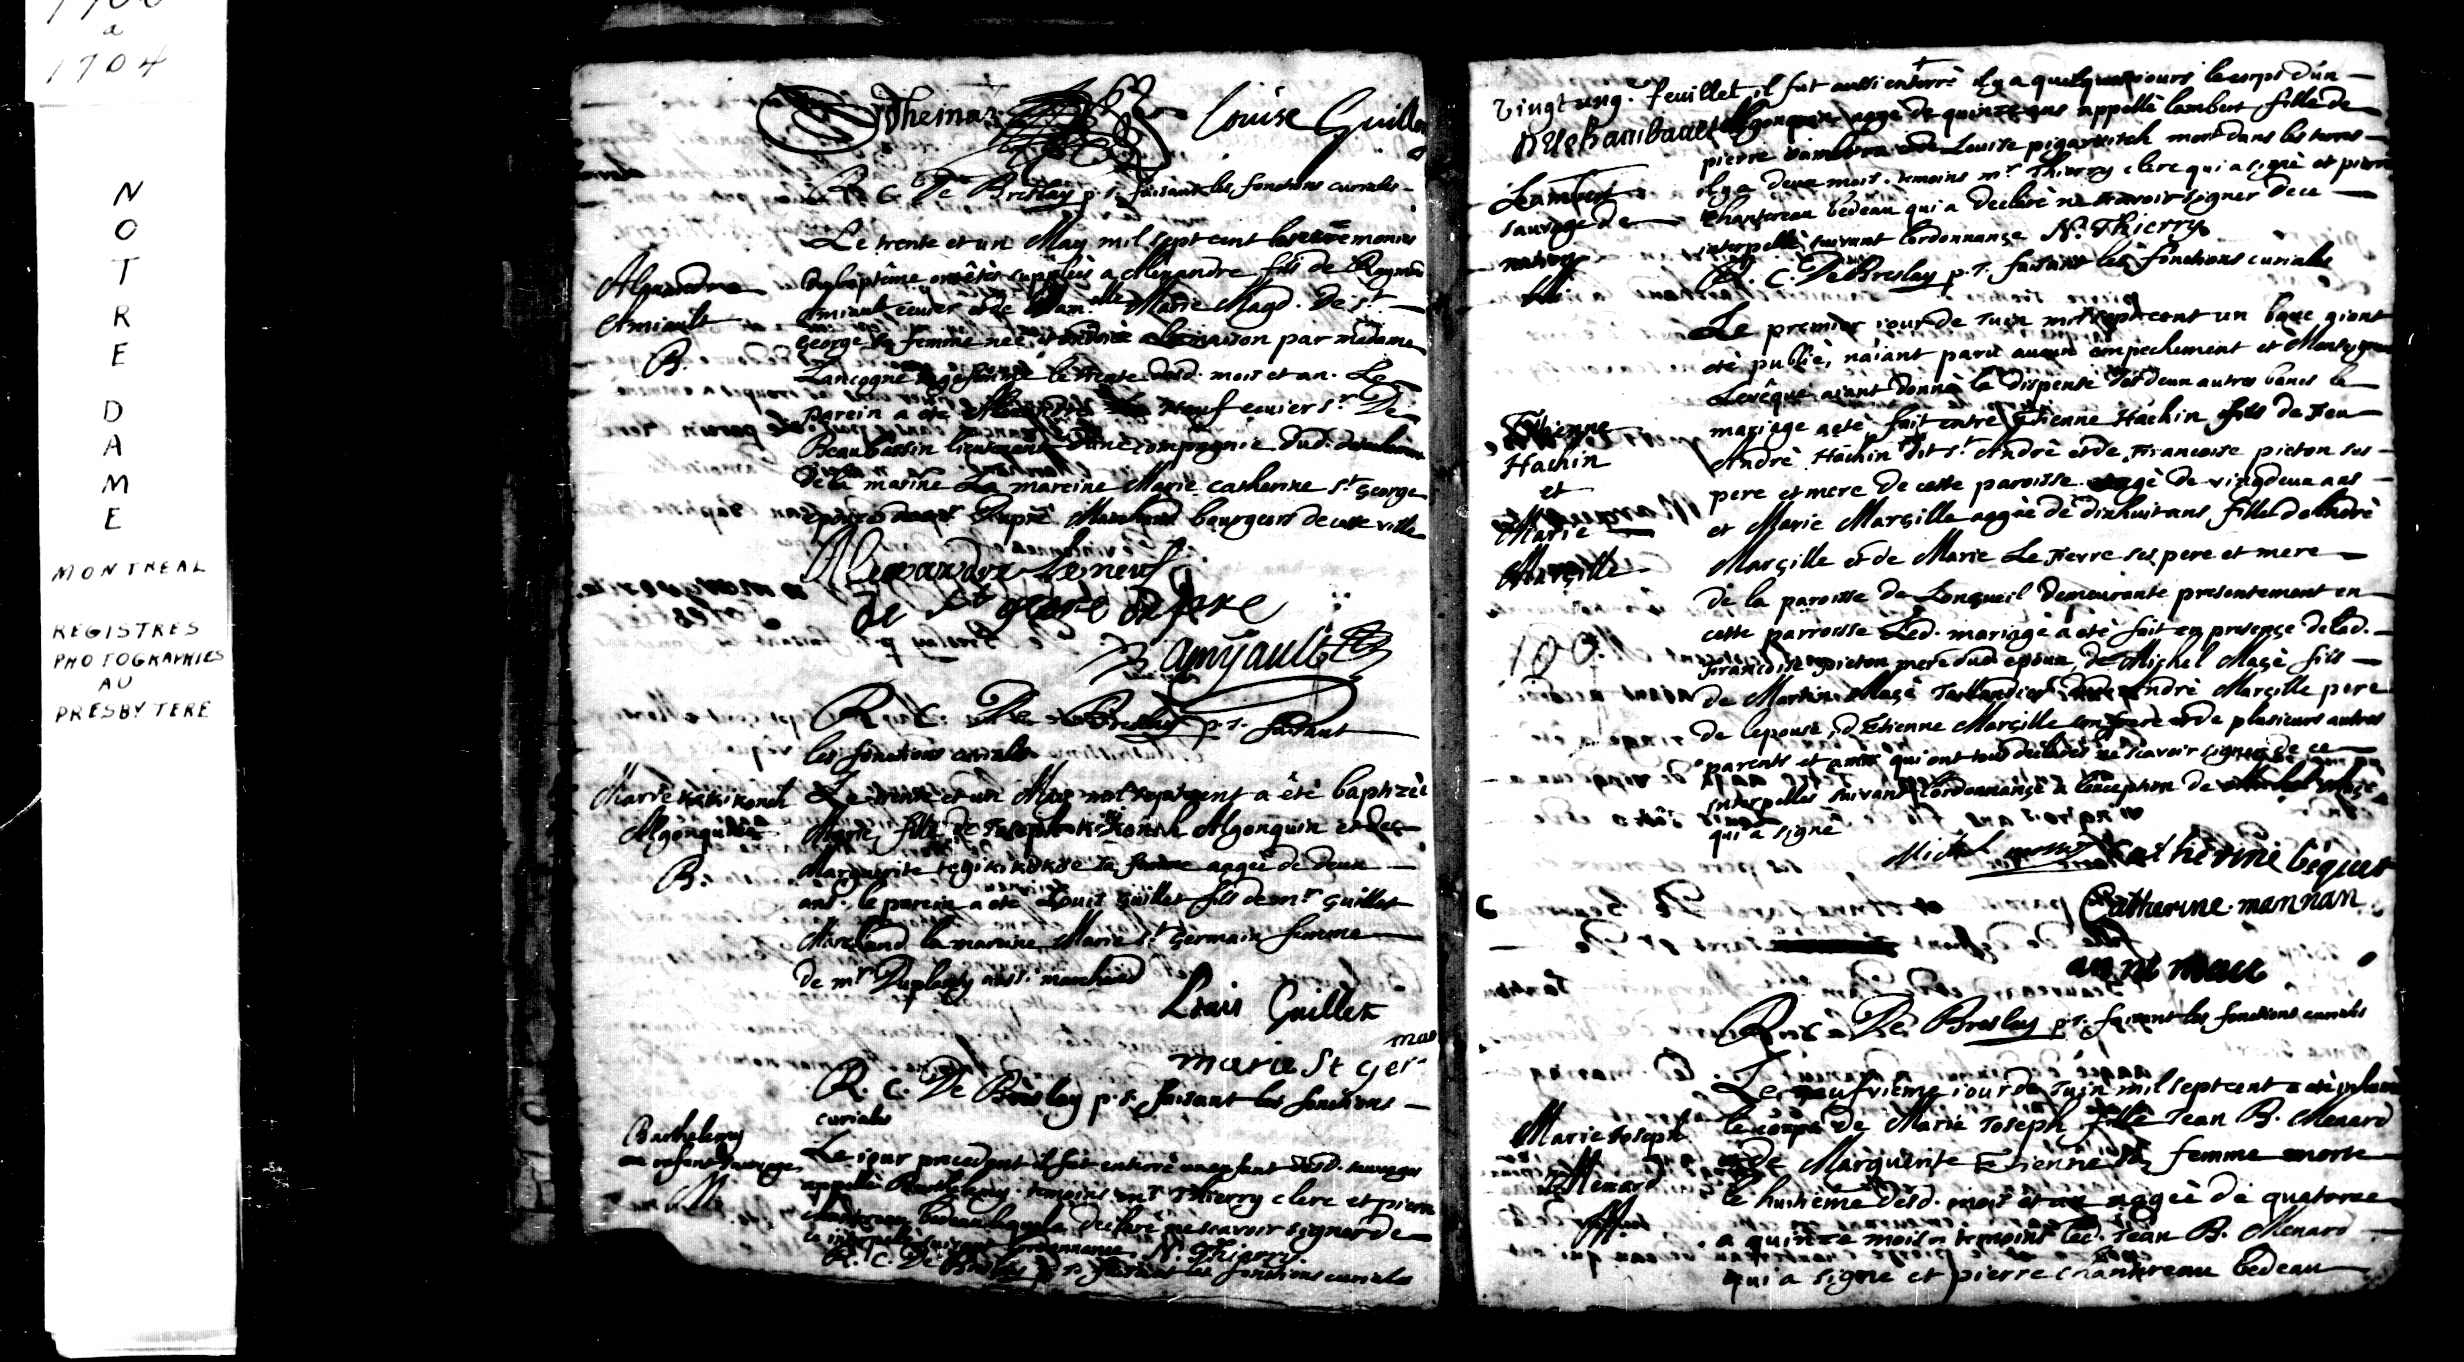 1700
a
1704
NOTRE DAME
MONTREAL
REGISTRES
PHOTOGRAPHIES
AU
PRESBYTERE
Louise Guillet
R. C. De Breslay p. s. faisant les fonctions curiales
Alexandre
Amiault
B.
Le trente et un May mil sept cent les ceremonies
du baptême ont étés suppléés a Alexandre fils de
Amiault ecuier et de Dam.elle Marie Magd. De St.
George sa femme née et ondoié a la maison par madame
le trente dud. mois et an. Le
parein a été Alexandre Neuf ecuier Sr. De
Beaubassin lieutenant d'une compagnie dud.
De la marine La mareine Marie Catherine St. George
Dupré Marchand bourgeois de cette ville
Alexandre Leneuf
de St george dupre
amyault
R. C. De Breslay p. s. faisant
les fonctions curiales
Marie
Algonquine
B.
Le trente et un May mil sept cent a été baptizée
Marie fille de Joseph Algonquin et de
Marguerite sa femme aagée de deux
ans. le parein a été Louis Guillet fils de mr. Guillet
Marchand la mareine Marie St. Germain femme
de mr. Duplessy aussi marchand
Louis Guillet
marie St Ger
man
R. C. De Breslay p. s. faisant les fonctions
curiales
Barthelemy
un enfant sauvage
Le jour precedent il fut enterré un enfant desd. sauvages
appellé Barthelemy. temoins mr. Thierry clerc et pierre
chantereau bedeau lequel a declaré ne scavoir signer de
ce interpellé suivant l'ordonnance N. Thierry.
R. C. De Breslay p. s. faisant les fonctions curiales
vingt ung. feuillet
Dechambault
Lambert
sauvage de
nation
il fut aussi enterré il y a quelques jours le corps d'un
Algonquin aagé de quinze ans appellé Lambert fils de
pierre et de Louise mort dans les terres
il y a deux mois. temoins mr. Thierry clerc qui a signé et pierre
Chantereau bedeau qui a declaré ne scavoir signer de ce
interpellé suivant l'ordonnance N. Thierry
R. C. De Breslay p. s. faisant les fonctions curiales
Etienne
Hachin
et
Marie
Marsille
Le premier jour de Juin mil sept cent un banc aiant
été publié, n'aiant paru aucun empechement et Monseigneur
Levêque aiant donné la dispense des deux autres bancs le
mariage a été fait entre Etienne Hachin fils de Feu
André Hachin dit St. André et de Francoise picton ses
pere et mere de cette paroisse aagé de vingdeux ans
et Marie Marsille aagée de dixhuit ans fille d'André
Marsille et de Marie Le Fierre ses pere et mere
de la paroisse de Longueil demeurante presentement en
cette parroisse Led. mariage a été fait en presence de lad.
Francoise picton mere dud. epoux, de Michel Magé fils
de Martin Magé Taillandier, André Marsille pere
de l'epouse, d'Etienne Marsille son frere et de plusieurs autres
parents et amis qui ont tous declarés ne scavoir signer de ce
interpellés suivant l'ordonnance a l'exception de Michel Magé
qui a signé
Michel
Catherine
Catherine
anne
R. C. De Breslay p. s. faisant les fonctions curiales
Marie Joseph
Menard
Le neufvieme jour de Juin mil sept cent a été inhumé
le corps de Marie Joseph fille Jean B. Menard
et de Marguerite Etienne sa femme morte
le huitième desd. mois et an aagée de quatorze
a quinze mois. temoins led. Jean B. Menard
qui a signe et pierre chantereau bedeau